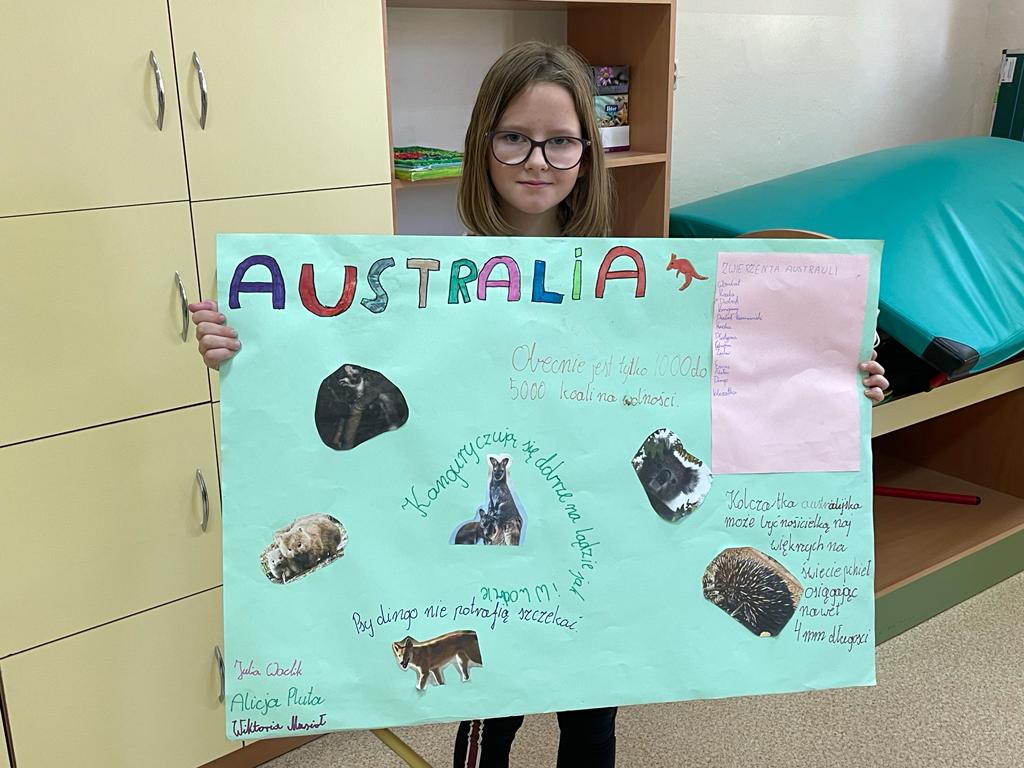 AUSTRALIA
ZWIERZENTA AUSTRALI
Koala
Kangury
Dingo
Obecnie jest tylko 1000 do
5000 koali na wolności.
Kangury czują się dobrze na lądzie jak
i w wodzie
Kolczatka australijska
może być nosicielką naj
większych na
świecie pcheł
osiągając
nawet
4 mm długości
Psy dingo nie potrafią szczekać.
Julia Wactik
Alicja Pluta
Wiktoria Musioł